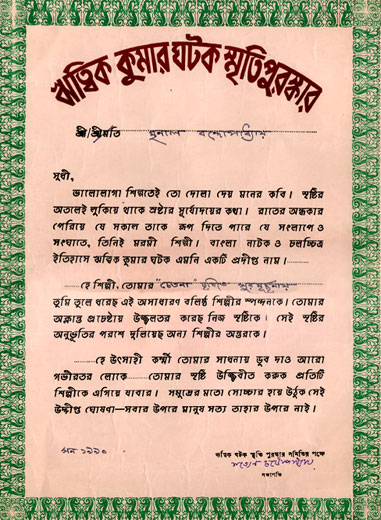 ঋত্বিক কুমার ঘটক স্মৃতিপুরস্কার
শ্রী/শ্রীমতি বন্দোপাধ্যায়
সুধী,
ভালোলাগা শিল্পতেই তো দোলা দেয় মনের কবি। সৃষ্টির
অতলেই লুকিয়ে থাকে স্রষ্টার সূর্যোদয়ের কথা। রাতের অন্ধকার
পেরিয়ে যে সকাল তাকে রূপ দিতে পারে যে সংলাপে ও
সংঘাতে, তিনিই মরমী শিল্পী। বাংলা নাটক ও চলচ্চিত্র
ইতিহাসে ঋত্বিক কুমার ঘটক এমনি একটি প্রদীপ্ত নাম।
হে শিল্পী, তোমার
তুমি তুলে ধরেছ এই অসাধারণ বলিষ্ঠ শিল্পীর স্পন্দনকে। তোমার
অক্লান্ত প্রচেষ্টায় উজ্জ্বলতর করেছ নিজ সৃষ্টিকে। সেই সৃষ্টির
অনুভূতির পরশে দুলিয়েছ অন্য শিল্পীর অন্তরকে।
হে উৎসাহী কর্মী তোমার সাধনায় ডুব দাও আরো
গভীরতর লোকে তোমার সৃষ্টি উজ্জিবীত করুক প্রতিটি
শিল্পীকে এগিয়ে যাবার। সমুদ্রের মতো সোচ্চার হয়ে উঠুক সেই
উদ্দীপ্ত ঘোষণা—সবার উপরে মানুষ সত্য তাহার উপরে নাই।
সন ১৯৯০
ঋত্বিক ঘটক স্মৃতি পুরস্কার সমিতির পক্ষে
সভাপতি